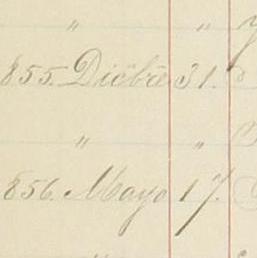 " "
855. Dicbre 31.
" "
856. Mayo 17.